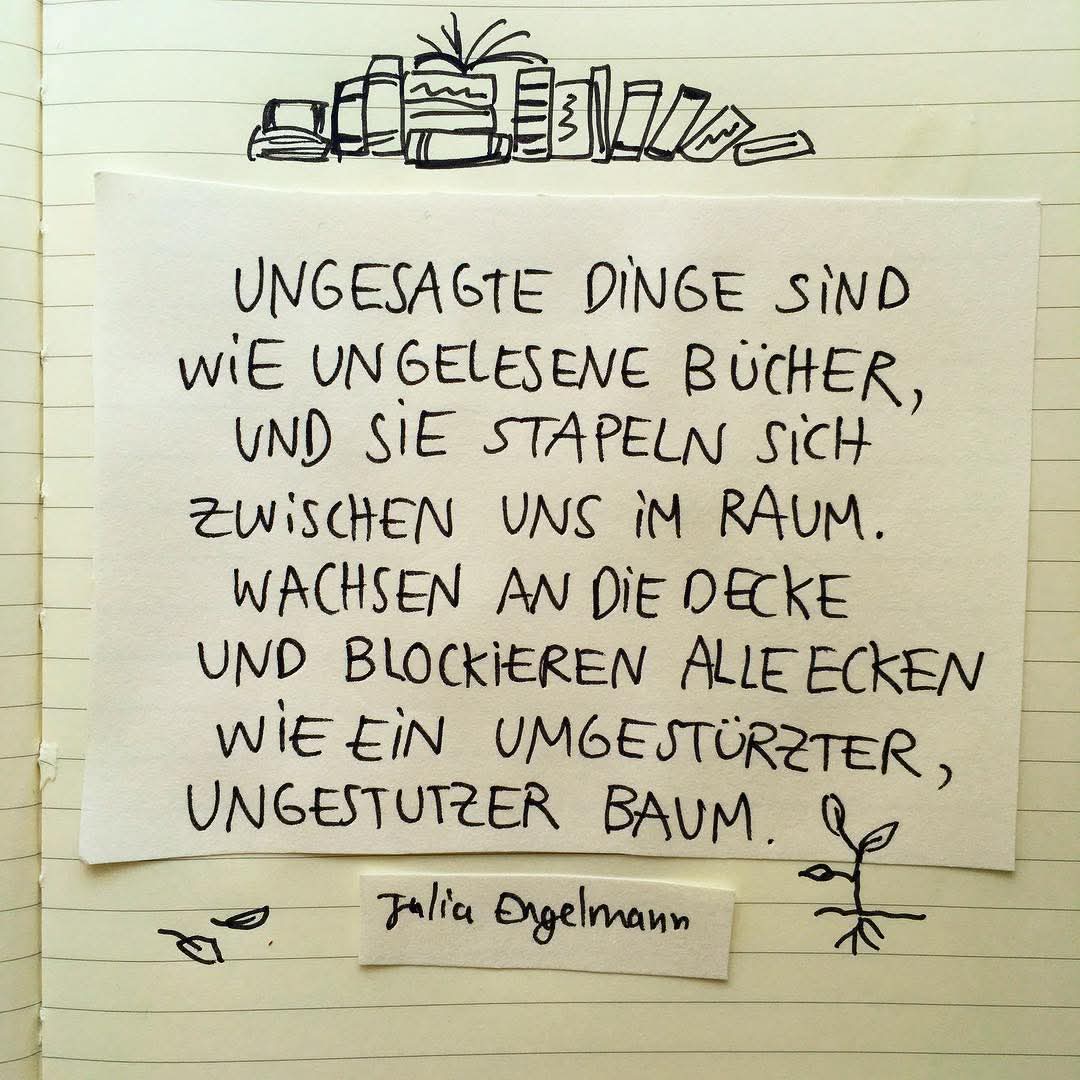 UNGESAGTE DINGE SiND
WiE UNGELESENE BÜCHER,
UND SiE STAPELN SiCH
ZWiSCHEN UNS iM RAUM.
WACHSEN AN DiE DECKE
UND BLOCKiEREN ALLE ECKEN
WiE EiN UMGESTÜRZTER,
UNGESTUTZER BAUM.
Julia Engelmann